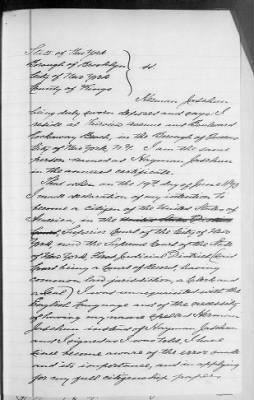 State of New York
Borough of Brooklyn } ss.
City of New York
County of Kings
Herman Joachim
being duly sworn deposes and says: I
reside at Fairview avenue and Boulevard
Rockaway Beach, in the Borough of Queens
City of New York, N.Y. I am the same
person named as Hayman Joachim
in the annexed certificate.
That when on the 19th day of June 1893
I made declaration of my intention to
become a citizen of the United States of
America, in the
Superior Court of the City of New
York, now the Supreme Court of the State
of New York, First Judicial District (said
Court being a Court of Record, having
common law jurisdiction, a Clerk and
a Seal) I was unacquainted with the
English language and of the necessity
of having my name spelled Herman
Joachim instead of Hayman Joachim
and I signed as I was told, I have
since become aware of the error made
and its importance, and in applying
for my full citizenship papers